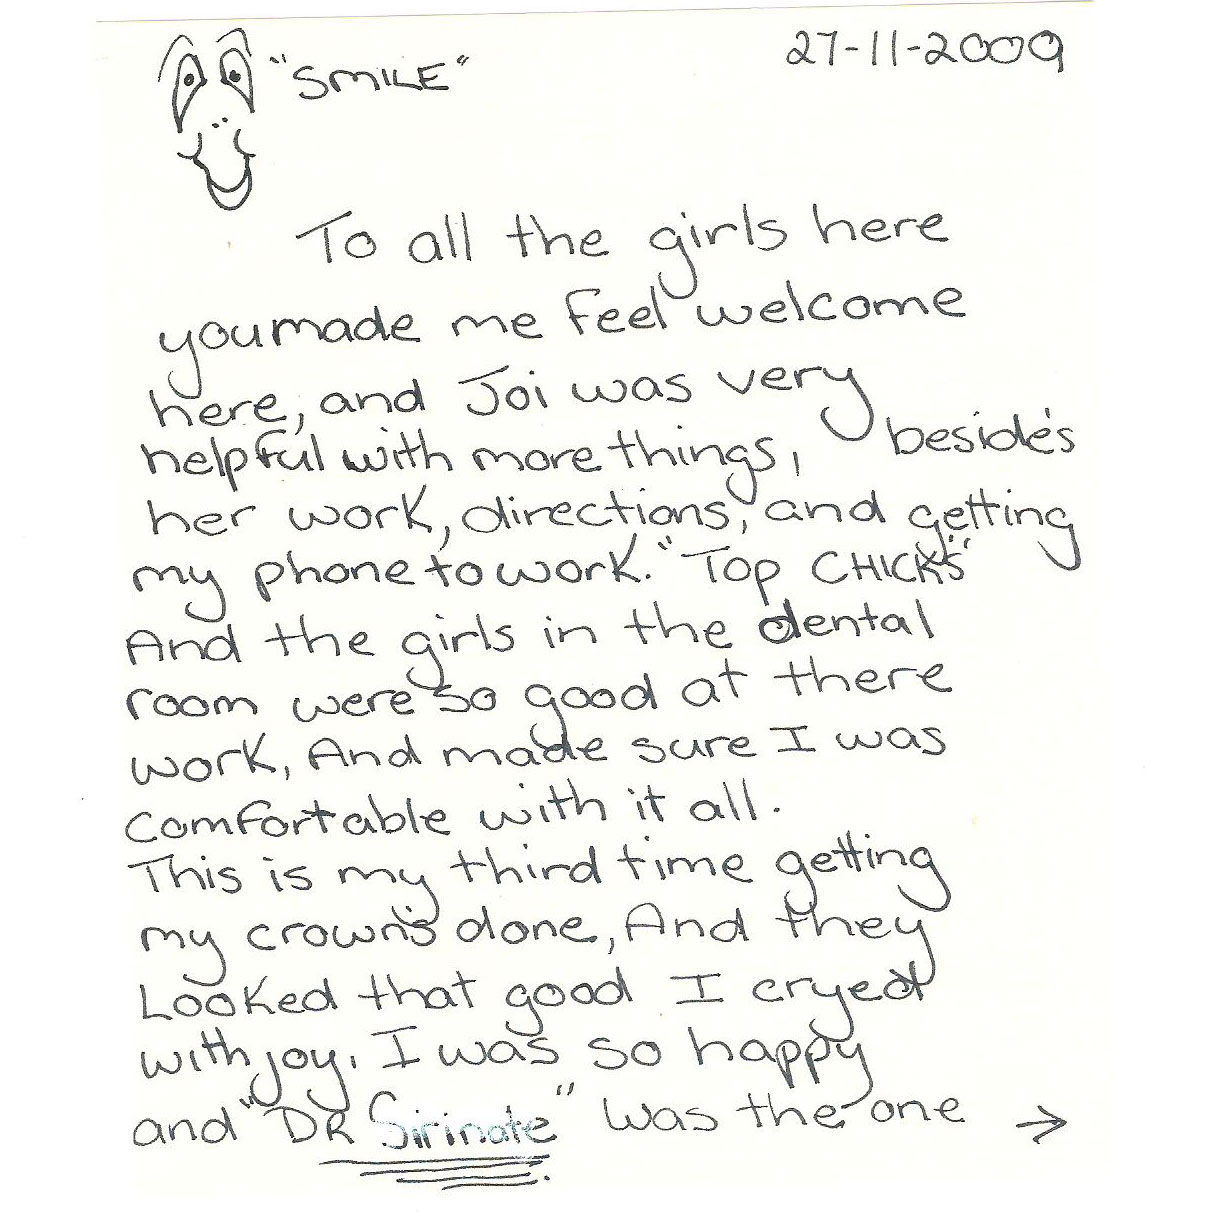 "SMILE"
27-11-2009
To all the girls here
you made me feel welcome
here, and Joi was very
helpful with more things, beside's
her work, directions, and getting
my phone to work. "Top CHICK'S"
And the girls in the dental
room were so good at there
work, And made sure I was
comfortable with it all.
This is my third time getting
my crown's done, And they
Looked that good I cryed
with joy. I was so happy
and "DR Sirinate" was the one →